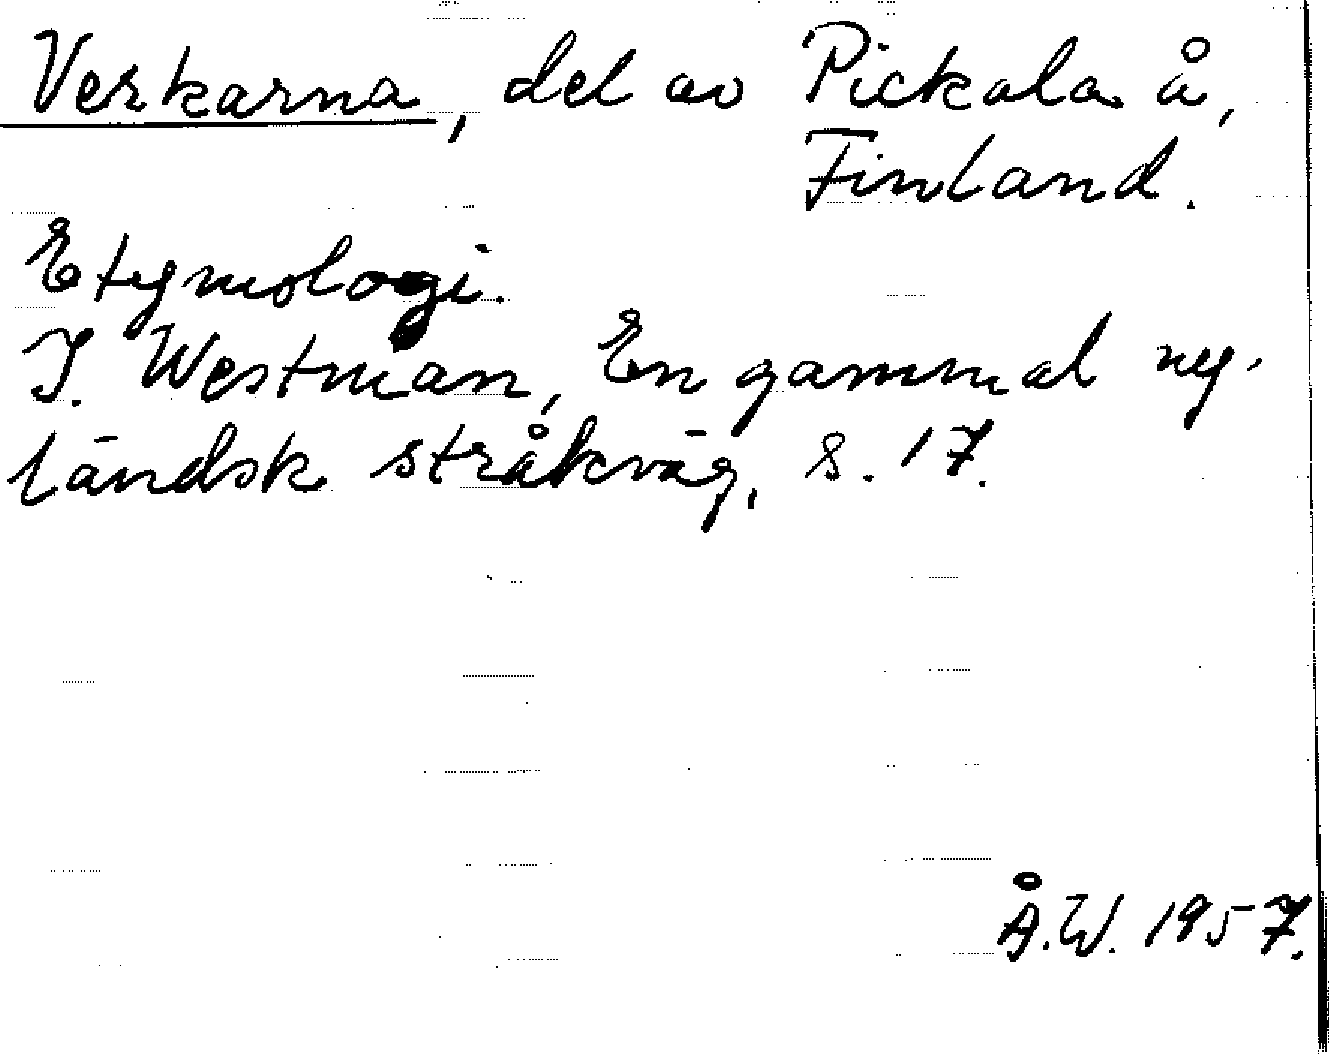 Verkarna, del av Pickala å,
Finland.
Etymologi.
I. Westman, En gammal ny-
ländsk stråkväg, s. 17.
Å.W. 1957.